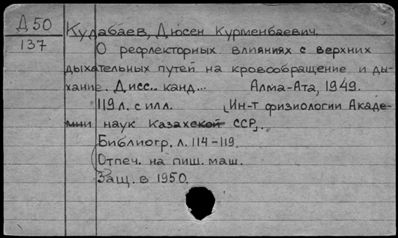 Д50
137
Кудабаев, Дюсен Курменбаевич.
О рефлекторных влияниях с верхних
дыхательных путей на кровообращение и ды-
хание. Дисс.. канд...    Алма-Ата, 1949.
119 л. с илл.    Ин-т физиологии Акаде-
мии наук Казахской ССР..
Библиогр. л. 114-119.
Отпеч. на пиш. маш.
Защ. в 1950.